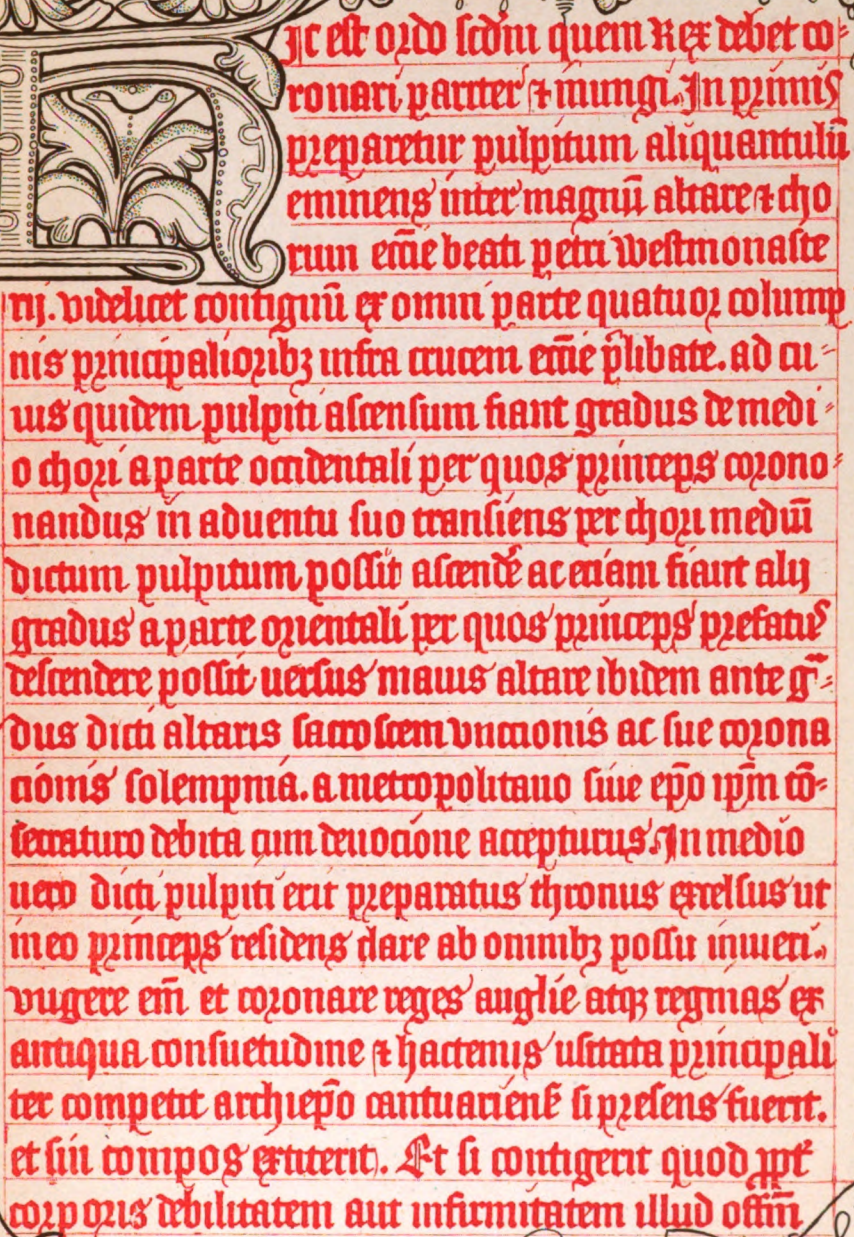 Hic est ordo scd̄m quem Rex debet co⸗
ronari pariter ⁊ inungi. In primis
preparetur pulpitum aliquantulū
eminens inter magnū altare ⁊ cho
rum ecc̄ie beati petri westmonaste
rij. videlicet contiguū ex omni parte quatuor colump
nis principalioribꝫ infra crucem ecc̄ie p̄libate. ad cu⸗
ius quidem pulpiti ascensum fiant gradus de medi⸗
o chori a parte occidentali per quos princeps corono⸗
nandus in aduentu suo transiens per chori mediū
dictum pulpitum possit ascendē ac eciam fiant alij
gradus a parte orientali per quos princeps prefatus
descendere possit uersus maius altare ibidem ante gͣ⸗
dus dicti altaris sacrosc̄em vnctionis ac sue corona
cionis solempnia. a metropolitano siue ep̄o ip̄m cō⸗
secraturo debita cum deuocione accepturus. In medio
uero dicti pulpiti erit preparatus thronus excelsus ut
in eo princeps residens clare ab omnibꝫ possit intueri.
vngere em̄ et coronare reges anglie atqꝫ reginas ex
antiqua consuetudine ⁊ hactenus usitata principali
ter competit archiep̄o cantuariensẽ si presens fuerit.
et sui compos extiterit. Et si contigerit quod ꝓpt̄
corporis debilitatem aut infirmitatem illud offm̄